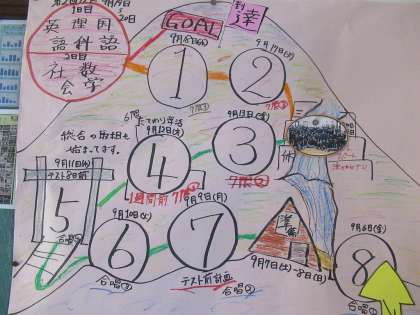 9月19日
1日目
20日
英 理 国
語 科 語
2日目
社 数
会 学
GOAL
到達
9月18日(水)
1
7限①
9月17日(火)
2
7限②
9月13日(金)
3
7限②
6限
たてわり生活
9月12日(木)
4
1週間前
7限①
総合の取組も
始まってます。
9月11日(水)
テスト8日前
5
合唱②
9月10日(火)
6
合唱③
9月9日(月)
7
テスト前計画
合唱②
9月7日(土)~8日(日)
9月6日(金)
8
合唱①